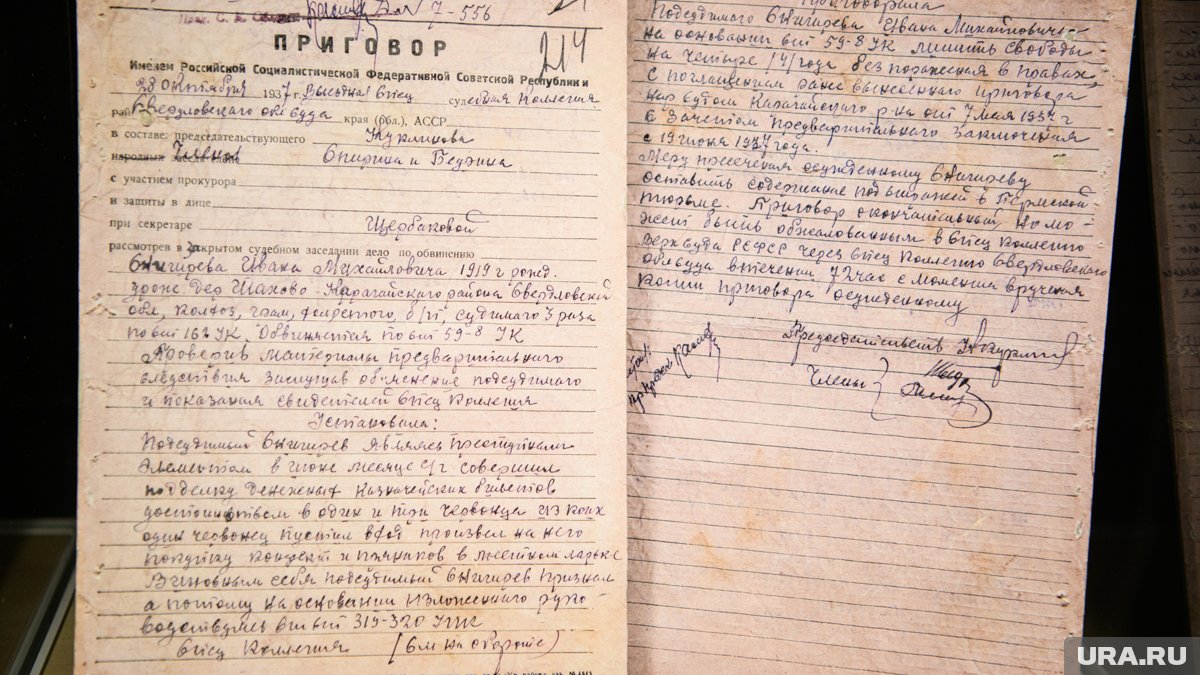 7-556
214
ПРИГОВОР
Именем Российской Социалистической Федеративной Советской Республики и
28 октября 1937 Выездная спец судебная Коллегия
Свердловского облсуда края (обл.), АССР
в составе: председательствующего Куклинова
народных членов Спирина и
с участием прокурора
и защиты в лице
при секретаре Щербаковой
рассмотрев в Закрытом судебном заседании дело по обвинению
Снигирева Ивана Михайловича 1919 г рожд.
урож. дер Шахово Карагайского района Свердловской
обл, колхоз, грам, холостого, б/п судимого 3 раза
по ст 162 УК. Обвиняется по ст 59-8 УК
Проверив материалы предварительного
следствия заслушав об'яснение подсудимого
и показания свидетелей спец коллегия
Установила:
Подсудимый Снигирев являясь преступным
элементом в июне месяце с/г совершил
подделку денежных казначейских билетов
достоинством в один и три червонца из коих
один червонец пустил в ход произвел на него
покупку конфект и пряников в местном ларьке
Виновным себя подсудимый Снигирев признал
а потому на основании изложенного руко-
водствуясь ст ст 319-320 УПК
спец Коллегия (см на обороте)
Приговорила
Подсудимого Снигирева Ивана Михайловича
на основании ст 59-8 УК лишить свободы
на четыре /4/ года без поражения в правах
с поглащением ранее вынесенного приговора
нар судом Карагайского р-на от 7 мая 1937 г
с зачетом предварительного заключения
с 19 июня 1937 года.
Меру пресечения осужденному Снигиреву
оставить содержание под стражей в Пермской
тюрьме. Приговор окончательный, но мо-
жет быть обжалованным в спец коллегию
Верхсуда РСФСР через спец коллегию Свердловского
облсуда в течении 72 час с момента вручения
копии приговора осужденному
Председательств
Члены
URA.RU